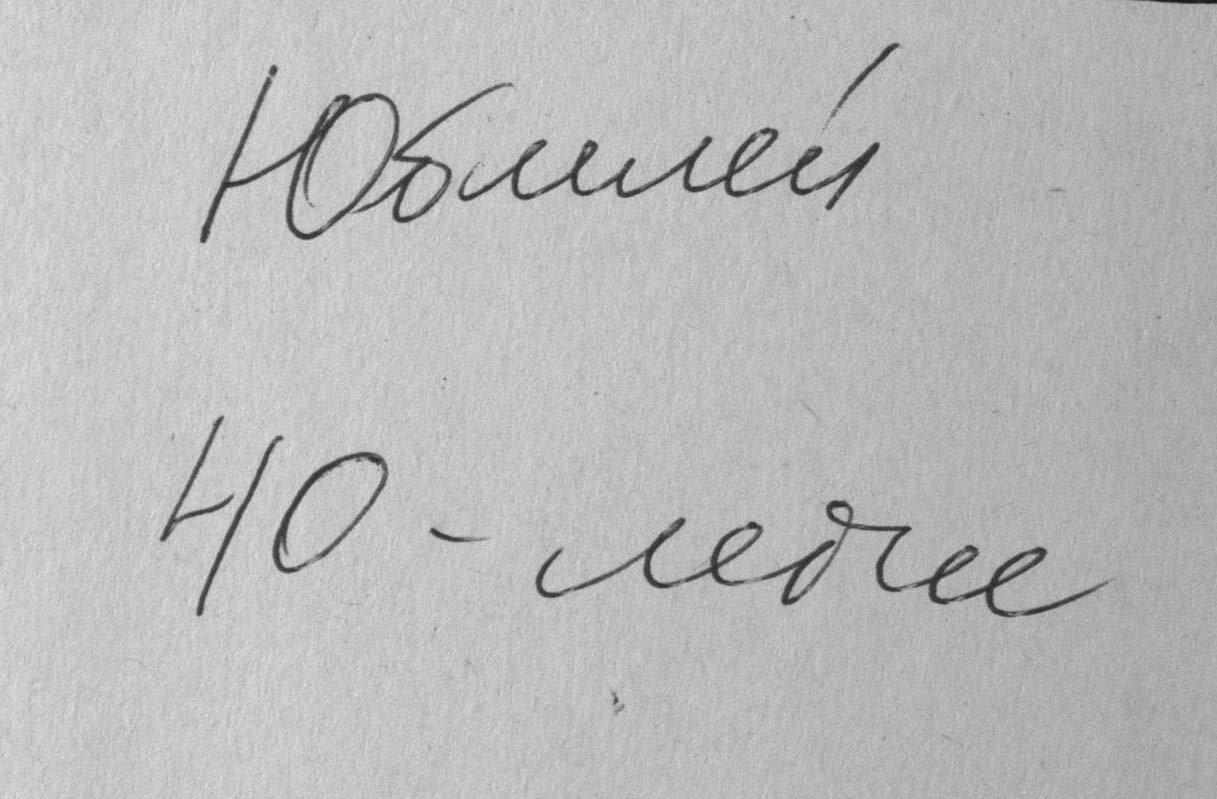 Юбилей
40-летие